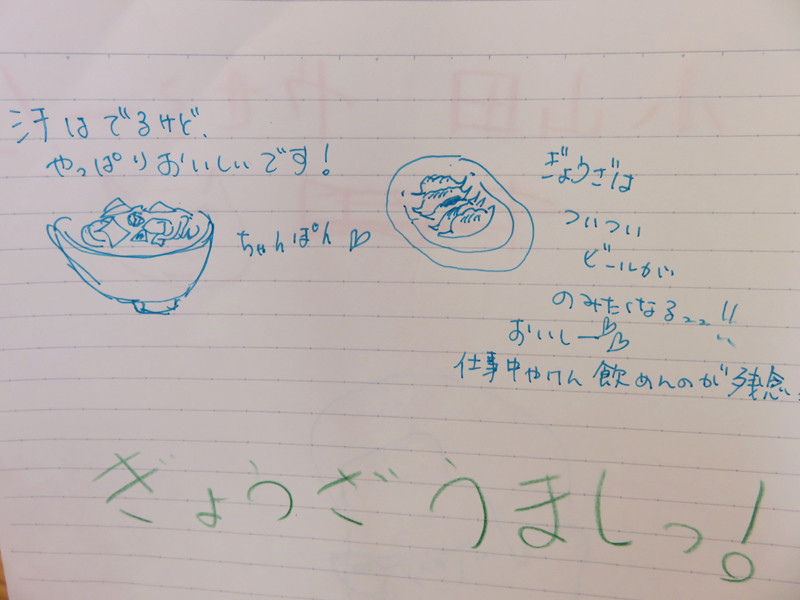 汗はでるけど、
やっぱりおいしいです!
ちゃんぽん♡
ぎょうざは
ついつい
ビールが
のみたくなる〜〜!!
おいしー♡♡
仕事中やけん飲めんのが残念。
ぎょうざうましっ!